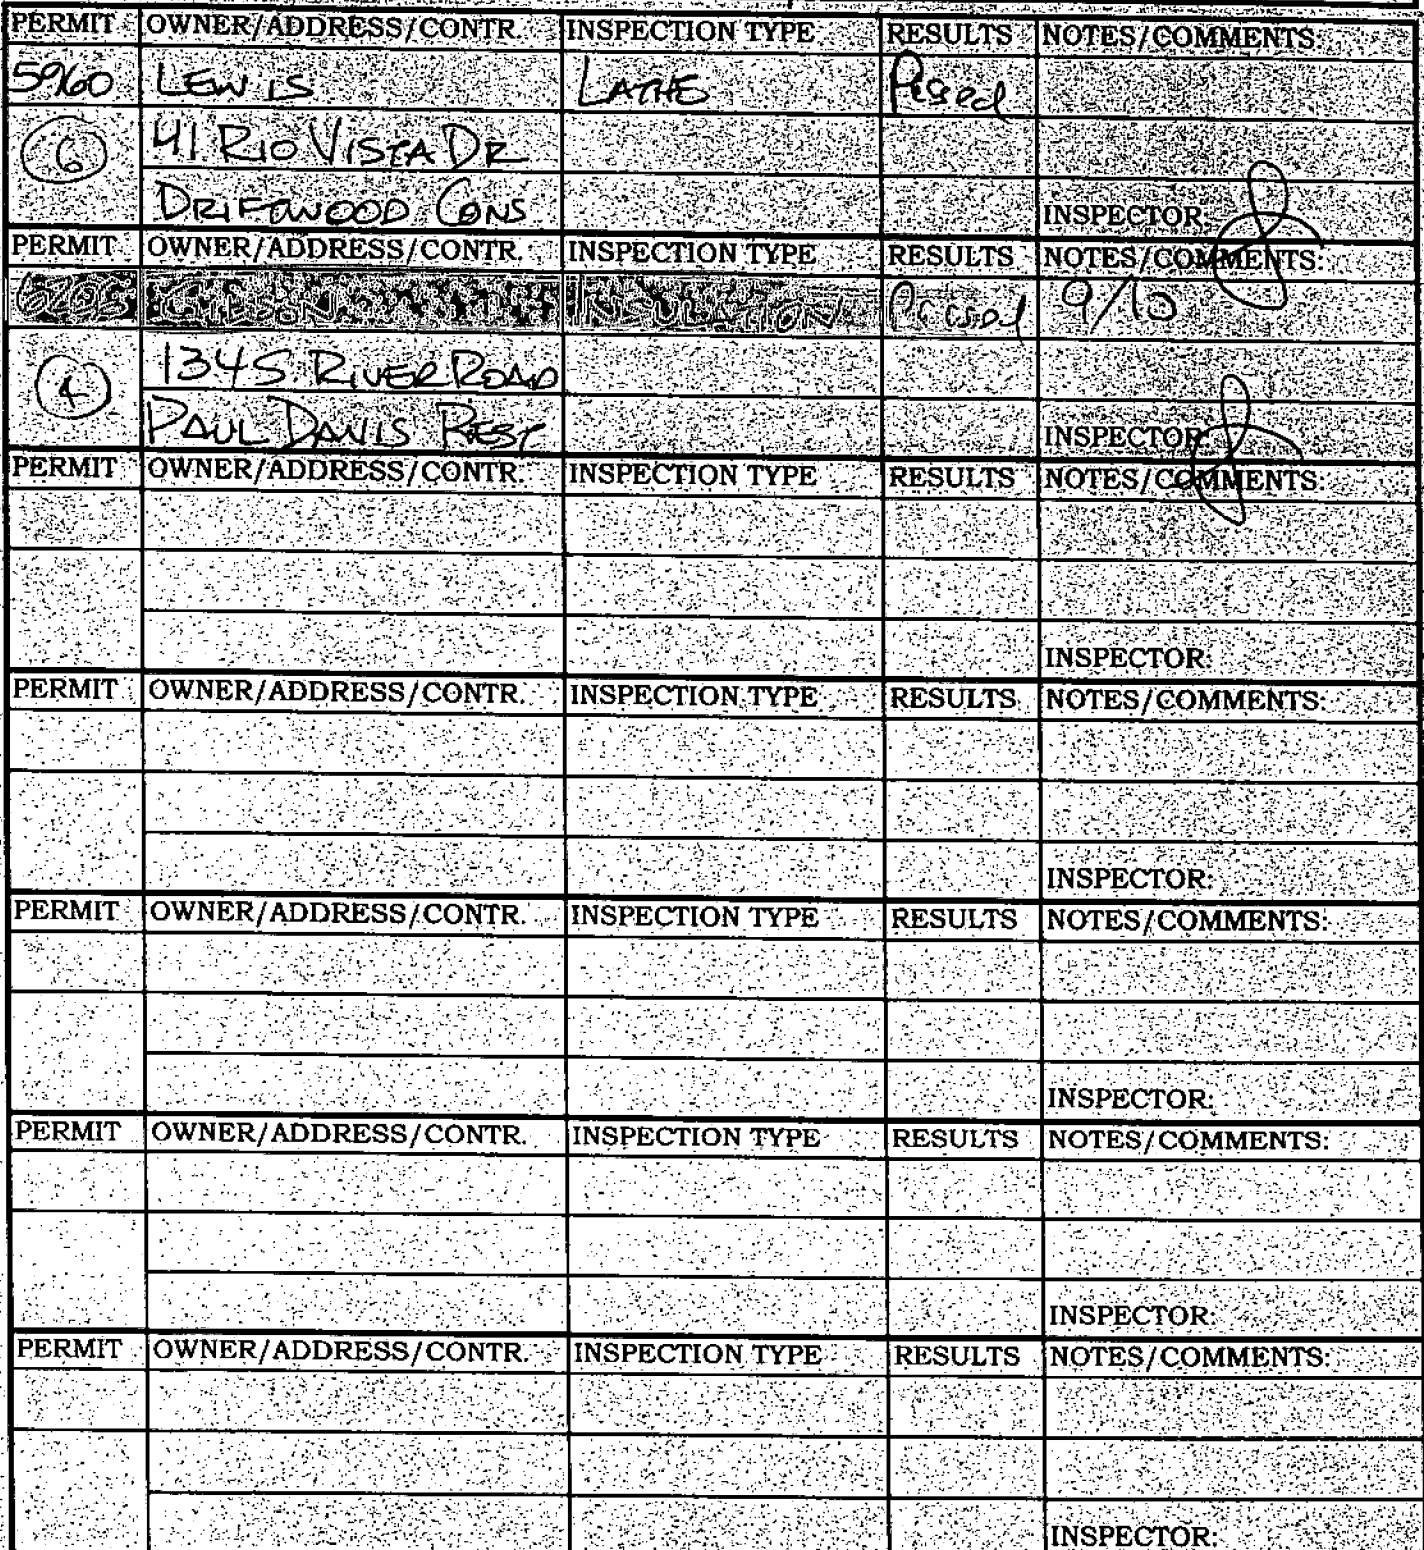 PERMIT OWNER/ADDRESS/CONTR. INSPECTION TYPE RESULTS NOTES/COMMENTS:
5960 LEWIS LATHE Passed
6 41 RIO VISTA DR
DRIFTWOOD CONS INSPECTOR:
PERMIT OWNER/ADDRESS/CONTR. INSPECTION TYPE RESULTS NOTES/COMMENTS:
INSULATION Passed 9/10
134 S. RIVER ROAD
PAUL DAVIS REST INSPECTOR:
PERMIT OWNER/ADDRESS/CONTR. INSPECTION TYPE RESULTS NOTES/COMMENTS:
INSPECTOR:
PERMIT OWNER/ADDRESS/CONTR. INSPECTION TYPE RESULTS NOTES/COMMENTS:
INSPECTOR:
PERMIT OWNER/ADDRESS/CONTR. INSPECTION TYPE RESULTS NOTES/COMMENTS:
INSPECTOR:
PERMIT OWNER/ADDRESS/CONTR. INSPECTION TYPE RESULTS NOTES/COMMENTS:
INSPECTOR:
PERMIT OWNER/ADDRESS/CONTR. INSPECTION TYPE RESULTS NOTES/COMMENTS:
INSPECTOR: